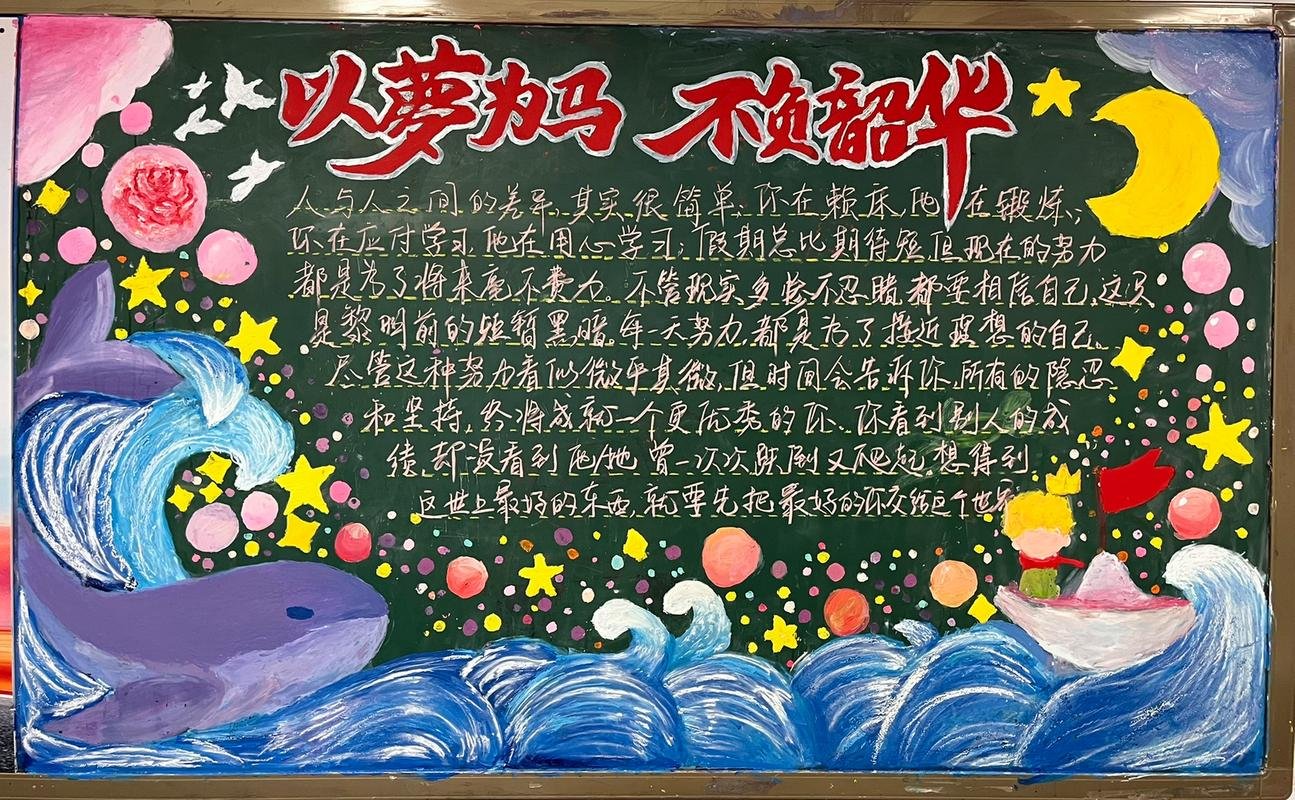 以夢为马 不负韶华
人与人之间的差异,其实很简单:你在赖床,他在锻炼;
你在应付学习,他在用心学习;假期总比期待短,但现在的努力
都是为了将来毫不费力。不管现实多惨不忍睹,都要相信自己,这只
是黎明前的短暂黑暗。每一天努力,都是为了接近理想的自己。
尽管这种努力看似微乎其微,但时间会告诉你,所有的隐忍
和坚持,终将成就一个更优秀的你。你看到别人的成
绩,却没看到他/她曾一次次跌倒又爬起,想得到
这世上最好的东西,就要先把最好的你交给这个世界